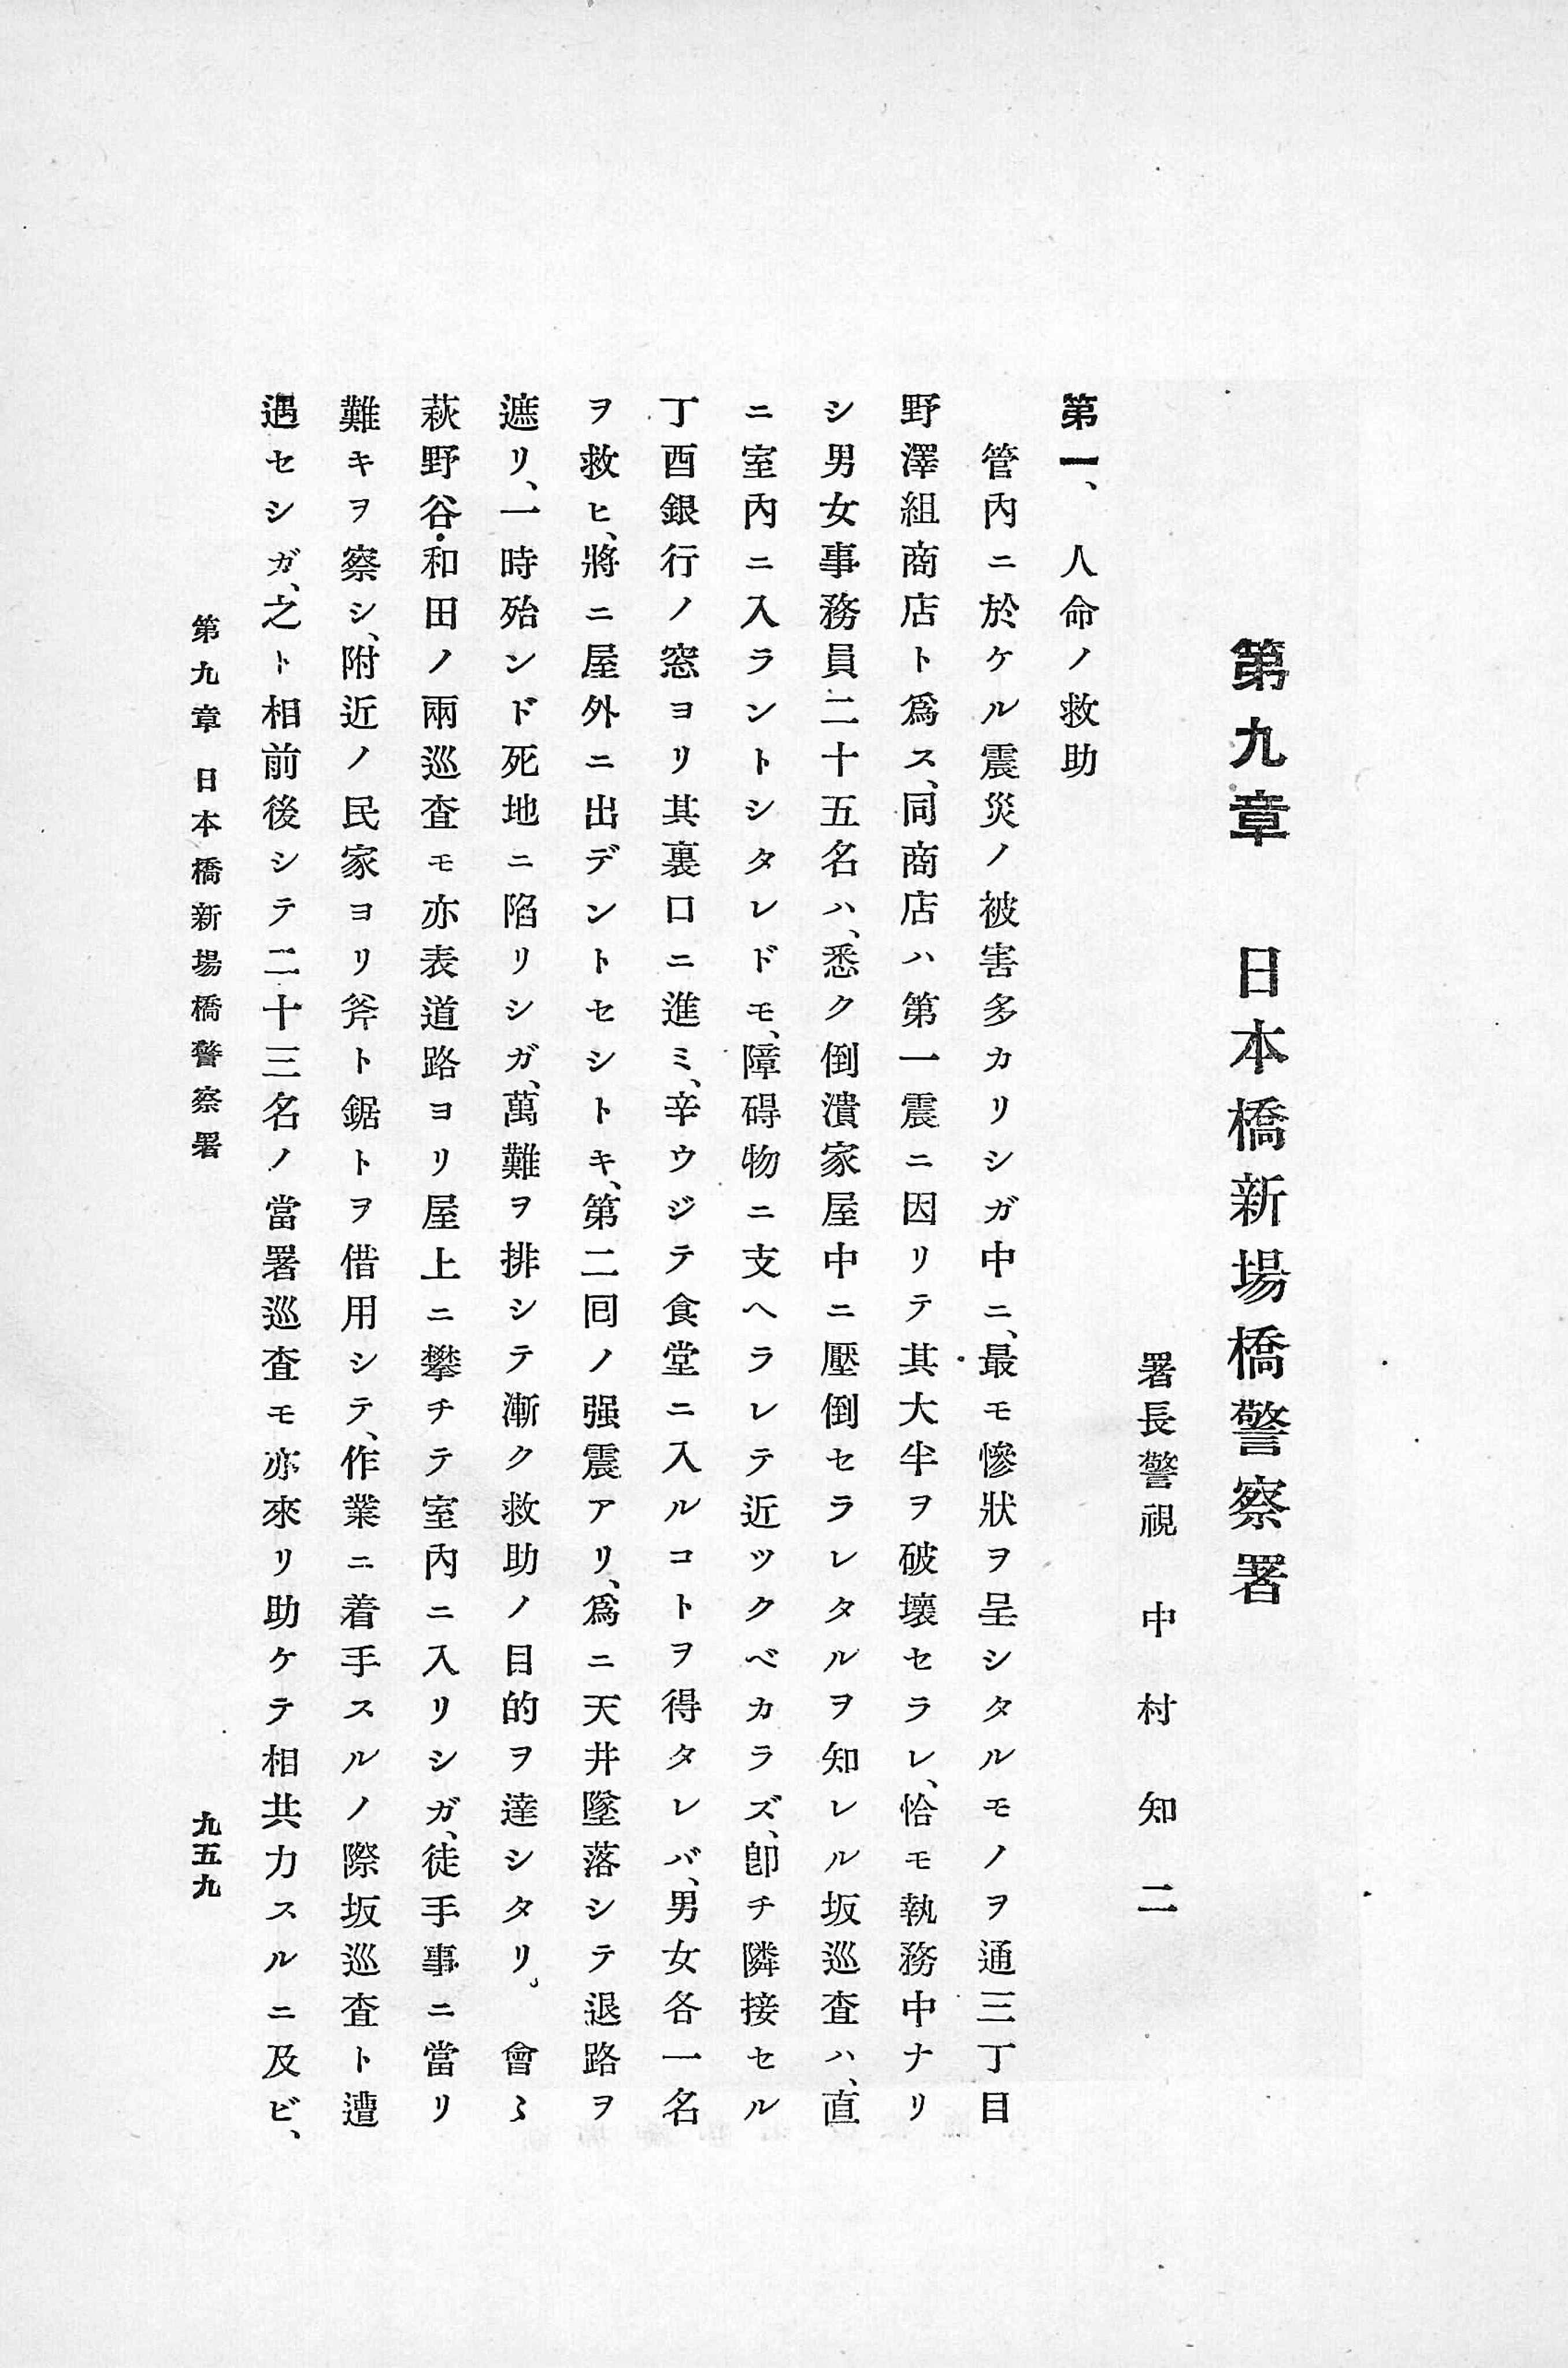 第九章　日本橋新場橋警察署
署長警視　中村知二
第一、人命ノ救助
管內ニ於ケル震災ノ被害多カリシガ中ニ、最モ慘狀ヲ呈シタルモノヲ通三丁目
野澤組商店ト爲ス、同商店ハ第一震ニ因リテ其大半ヲ破壞セラレ、恰モ執務中ナリ
シ男女事務員二十五名ハ、悉ク倒潰家屋中ニ壓倒セラレタルヲ知レル坂巡査ハ、直
ニ室內ニ入ラントシタレドモ、障碍物ニ支ヘラレテ近ツクベカラズ、卽チ隣接セル
丁酉銀行ノ窓ヨリ其裏口ニ進ミ、辛ウジテ食堂ニ入ルコトヲ得タレバ、男女各一名
ヲ救ヒ、將ニ屋外ニ出デントセシトキ、第二囘ノ强震アリ、爲ニ天井墜落シテ退路ヲ
遮リ、一時殆ンド死地ニ陷リシガ、萬難ヲ排シテ漸ク救助ノ目的ヲ達シタリ。　會〻
萩野谷・和田ノ兩巡査モ亦表道路ヨリ屋上ニ攀チテ室內ニ入リシガ、徒手事ニ當リ
難キヲ察シ、附近ノ民家ヨリ斧ト鋸トヲ借用シテ、作業ニ着手スルノ際坂巡査ト遭
遇セシガ、之ト相前後シテ二十三名ノ當署巡査モ亦來リ助ケテ相共力スルニ及ビ、
第九章　日本橋新場橋警察署
九五九